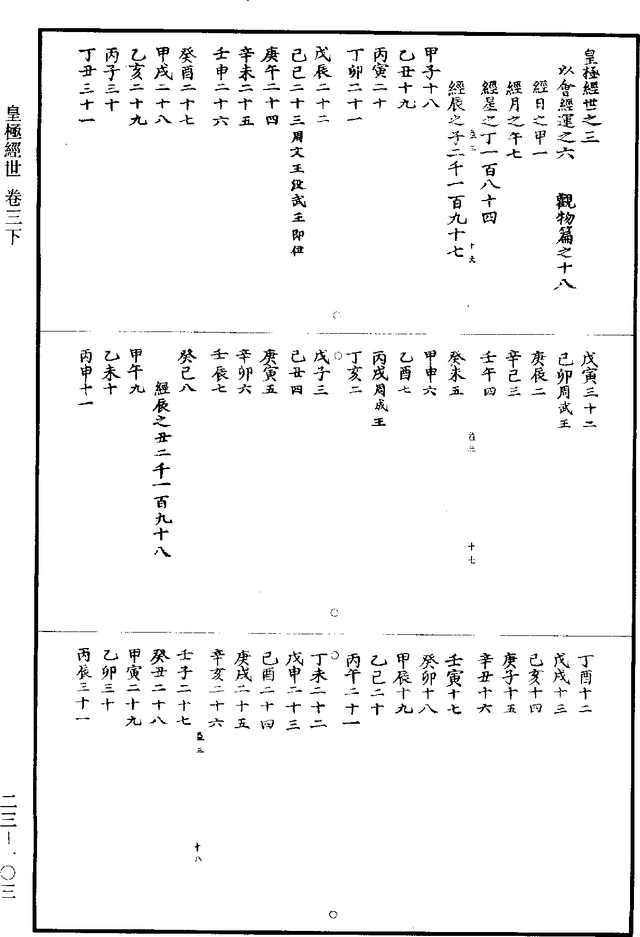 皇極經世之三
以會經運之六　觀物篇之十八
經日之甲一
經月之午七
經星之丁一百八十四
經辰之子二千一百九十七
甲子十八
乙丑十九
丙寅二十
丁卯二十一
戊辰二十二
己巳二十三周文王歿武王即位
庚午二十四
辛未二十五
壬申二十六
癸酉二十七
甲戌二十八
乙亥二十九
丙子三十
丁丑三十一
戊寅三十二
己卯周武王
庚辰二
辛巳三
壬午四
癸未五
甲申六
乙酉七
丙戌周成王
丁亥二
戊子三
己丑四
庚寅五
辛卯六
壬辰七
癸巳八
經辰之丑二千一百九十八
甲午九
乙未十
丙申十一
丁酉十二
戊戌十三
己亥十四
庚子十五
辛丑十六
壬寅十七
癸卯十八
甲辰十九
乙巳二十
丙午二十一
丁未二十二
戊申二十三
己酉二十四
庚戌二十五
辛亥二十六
壬子二十七
癸丑二十八
甲寅二十九
乙卯三十
丙辰三十一
十七
十八
皇極經世 卷三下
二三—一〇三